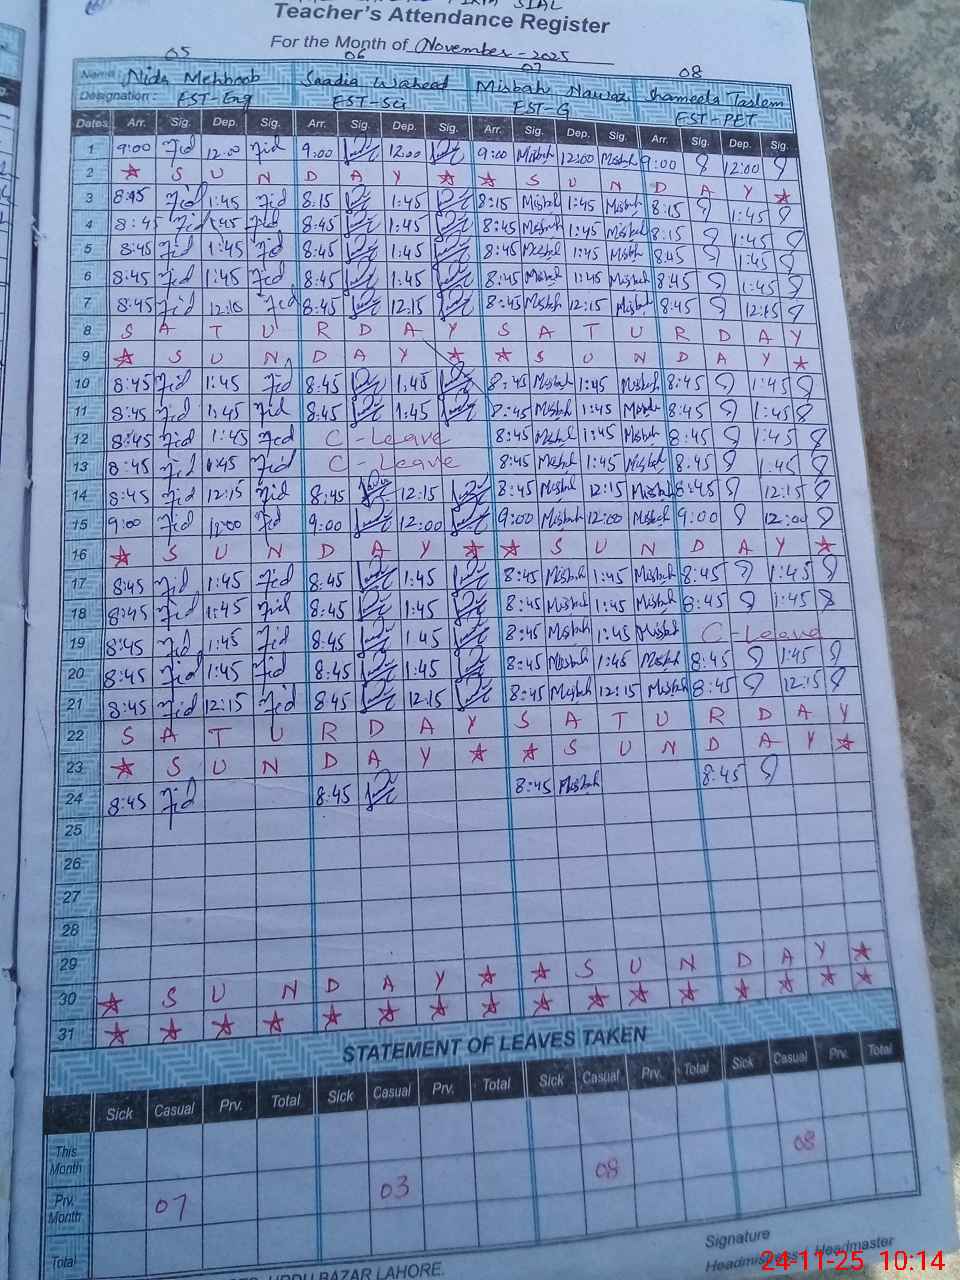 SIAL
Teacher's Attendance Register
For the Month of November - 2025
05 06 07 08
Name Nida Mehboob Saadia Waheed Misbah Nawaz Jhameela Taslem
Designation: EST-Eng EST-Sci EST-G EST-PET
Dates Arr. Sig. Dep. Sig. Arr. Sig. Dep. Sig. Arr. Sig. Dep. Sig. Arr. Sig. Dep. Sig.
1 9:00 12:00 9:00 12:00 9:00 Misbah 12:00 Misbah 9:00 12:00
2 S U N D A Y S U N D A Y
3 8:45 1:45 8:15 1:45 8:15 Misbah 1:45 Misbah 8:15 1:45
4 8:45 1:45 8:45 1:45 8:45 Misbah 1:45 Misbah 8:15 1:45
5 8:45 1:45 8:45 1:45 8:45 Misbah 1:45 Misbah 8:45 1:45
6 8:45 1:45 8:45 1:45 8:45 Misbah 1:45 Misbah 8:45 1:45
7 8:45 12:15 8:45 12:15 8:45 Misbah 12:15 Misbah 8:45 12:15
8 S A T U R D A Y S A T U R D A Y
9 S U N D A Y S U N D A Y
10 8:45 1:45 8:45 1:45 8:45 Misbah 1:45 Misbah 8:45 1:45
11 8:45 1:45 8:45 1:45 8:45 Misbah 1:45 Misbah 8:45 1:45
12 8:45 1:45 C-Leave 8:45 Misbah 1:45 Misbah 8:45 1:45
13 8:45 1:45 C-Leave 8:45 Misbah 1:45 Misbah 8:45 1:45
14 8:45 12:15 8:45 12:15 8:45 Misbah 12:15 Misbah 8:45 12:15
15 9:00 12:00 9:00 12:00 9:00 Misbah 12:00 Misbah 9:00 12:00
16 S U N D A Y S U N D A Y
17 8:45 1:45 8:45 1:45 8:45 Misbah 1:45 Misbah 8:45 1:45
18 8:45 1:45 8:45 1:45 8:45 Misbah 1:45 Misbah 8:45 1:45
19 8:45 1:45 8:45 1:45 8:45 Misbah 1:45 Misbah C-Leave
20 8:45 1:45 8:45 1:45 8:45 Misbah 1:45 Misbah 8:45 1:45
21 8:45 12:15 8:45 12:15 8:45 Misbah 12:15 Misbah 8:45 12:15
22 S A T U R D A Y S A T U R D A Y
23 S U N D A Y S U N D A Y
24 8:45 8:45 8:45 Misbah 8:45
25
26
27
28
29
30 S U N D A Y S U N D A Y
31
STATEMENT OF LEAVES TAKEN
Sick Casual Prv. Total Sick Casual Prv. Total Sick Casual Prv. Total Sick Casual Prv. Total
This Month
Prv. Month 07 03 08 08
Total
Signature
Headmistress / Headmaster
URDU BAZAR LAHORE.
24-11-25 10:14